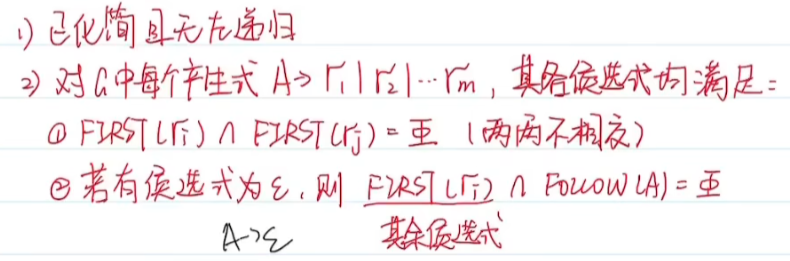 1) 已化简且无左递归
2) 对G中每个产生式 A→r₁|r₂|…rₘ, 其各侯选式均满足:
① FIRST(rᵢ) ∩ FIRST(rⱼ) = 亚 (两两不相交)
② 若有侯选式为ε, 则 FIRST(rᵢ) ∩ FOLLOW(A) = 亚
A→ε 其余侯选式